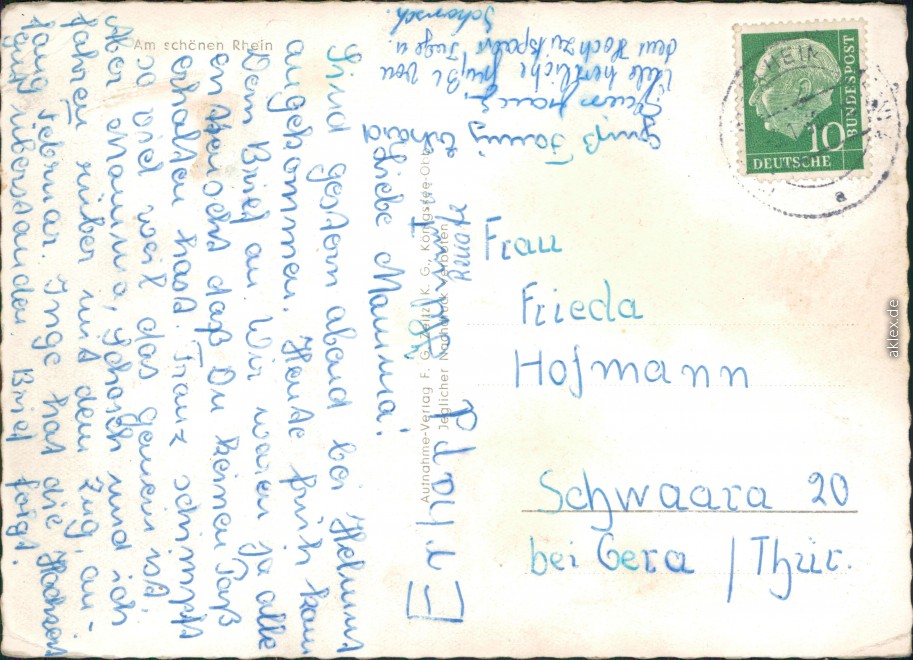 Am schönen Rhein
Liebe Mamma!
Sind gestern abend bei Helmut
angekommen. Heute früh kam
Dein Brief an. Wir waren ja alle
entteuscht daß Du keinen Paß
erhalten hast. Franz schimpft
so viel weil das gemein ist,
Aber Mamma, Schorsch und ich
fahren rüber mit dem Zug, an-
fang Februar. Inge hat die Hochzeit
gut überstanden Brief folgt.
Gruß Fanny Erhard
Franz
Viele herzliche Grüße von
dem Hochzeitspaar Inge u.
Schorsch.
Renate
Aufnahme-Verlag F. G. Zeitz K. G., Königssee-Obb.
Jeglicher Nachdruck verboten
DEUTSCHE
BUNDESPOST
10
RHEIN
a
Frau
Frieda
Hofmann
Schwaara 20
bei Gera / Thür.
aklex.de